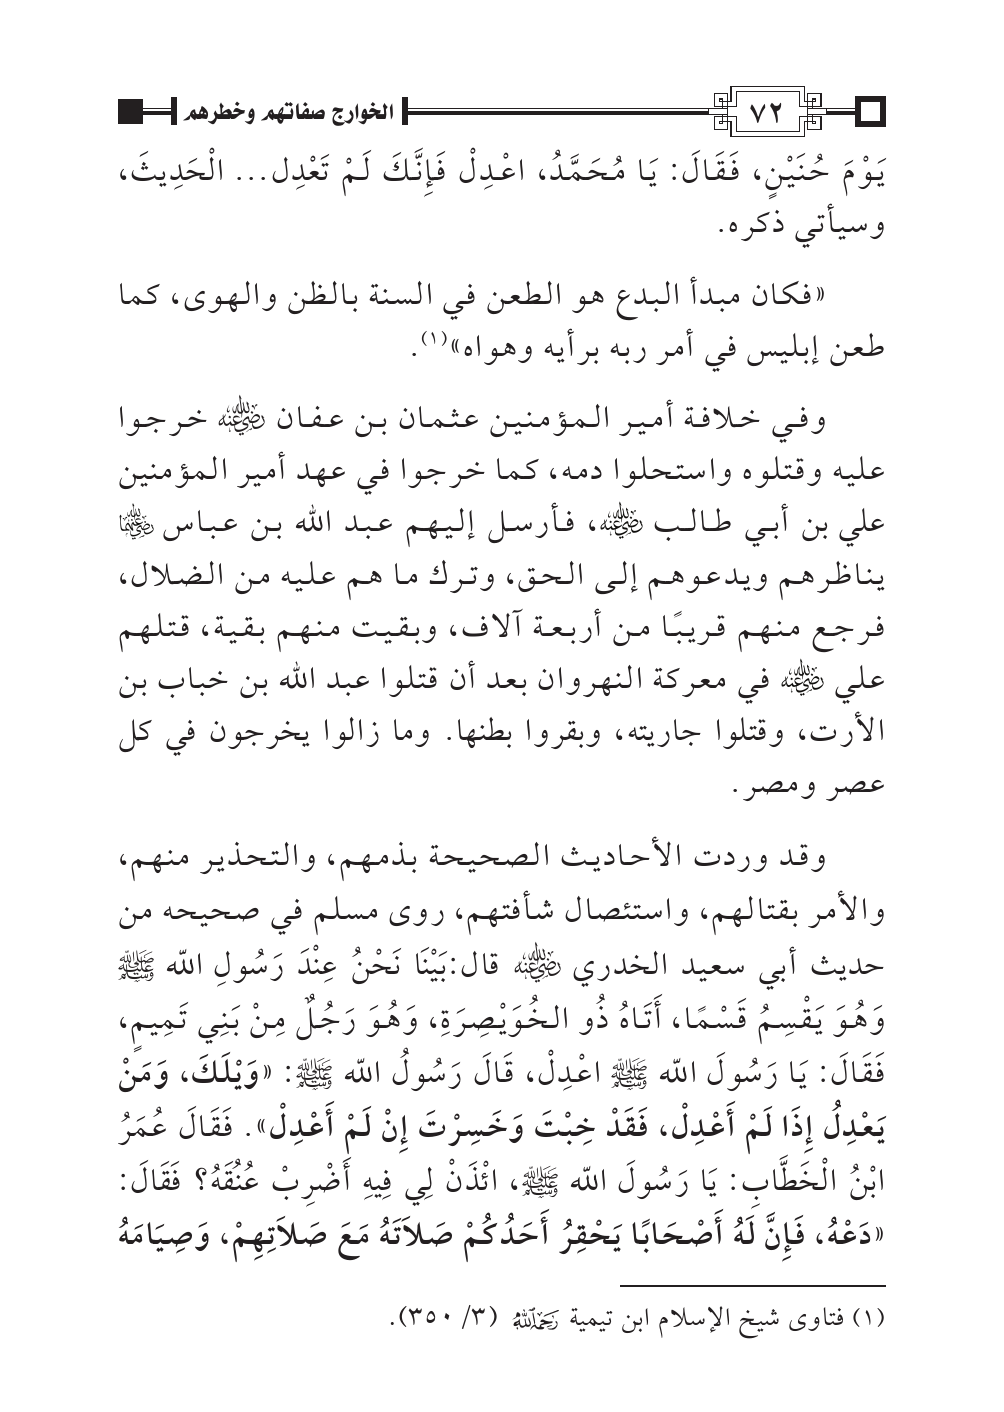 ٧٢ الخوارج صفاتهم وخطرهم
يَوْمَ حُنَيْنٍ، فَقَالَ: يَا مُحَمَّدُ، اعْدِلْ فَإِنَّكَ لَمْ تَعْدِل... الْحَدِيثَ،
وسيأتي ذكره.
«فكان مبدأ البدع هو الطعن في السنة بالظن والهوى، كما
طعن إبليس في أمر ربه برأيه وهواه»(١).
وفي خلافة أمير المؤمنين عثمان بن عفان رضي الله عنه خرجوا
عليه وقتلوه واستحلوا دمه، كما خرجوا في عهد أمير المؤمنين
علي بن أبي طالب رضي الله عنه، فأرسل إليهم عبد الله بن عباس رضي الله عنهما
يناظرهم ويدعوهم إلى الحق، وترك ما هم عليه من الضلال،
فرجع منهم قريبًا من أربعة آلاف، وبقيت منهم بقية، قتلهم
علي رضي الله عنه في معركة النهروان بعد أن قتلوا عبد الله بن خباب بن
الأرت، وقتلوا جاريته، وبقروا بطنها. وما زالوا يخرجون في كل
عصر ومصر.
وقد وردت الأحاديث الصحيحة بذمهم، والتحذير منهم،
والأمر بقتالهم، واستئصال شأفتهم، روى مسلم في صحيحه من
حديث أبي سعيد الخدري رضي الله عنه قال:بَيْنَا نَحْنُ عِنْدَ رَسُولِ الله ﷺ
وَهُوَ يَقْسِمُ قَسْمًا، أَتَاهُ ذُو الخُوَيْصِرَةِ، وَهُوَ رَجُلٌ مِنْ بَنِي تَمِيمٍ،
فَقَالَ: يَا رَسُولَ الله ﷺ اعْدِلْ، قَالَ رَسُولُ الله ﷺ: «وَيْلَكَ، وَمَنْ
يَعْدِلُ إِذَا لَمْ أَعْدِلْ، فَقَدْ خِبْتَ وَخَسِرْتَ إِنْ لَمْ أَعْدِلْ». فَقَالَ عُمَرُ
ابْنُ الْخَطَّابِ: يَا رَسُولَ الله ﷺ، ائْذَنْ لِي فِيهِ أَضْرِبْ عُنُقَهُ؟ فَقَالَ:
«دَعْهُ، فَإِنَّ لَهُ أَصْحَابًا يَحْقِرُ أَحَدُكُمْ صَلاَتَهُ مَعَ صَلاَتِهِمْ، وَصِيَامَهُ
(١) فتاوى شيخ الإسلام ابن تيمية رحمه الله (٣/ ٣٥٠).